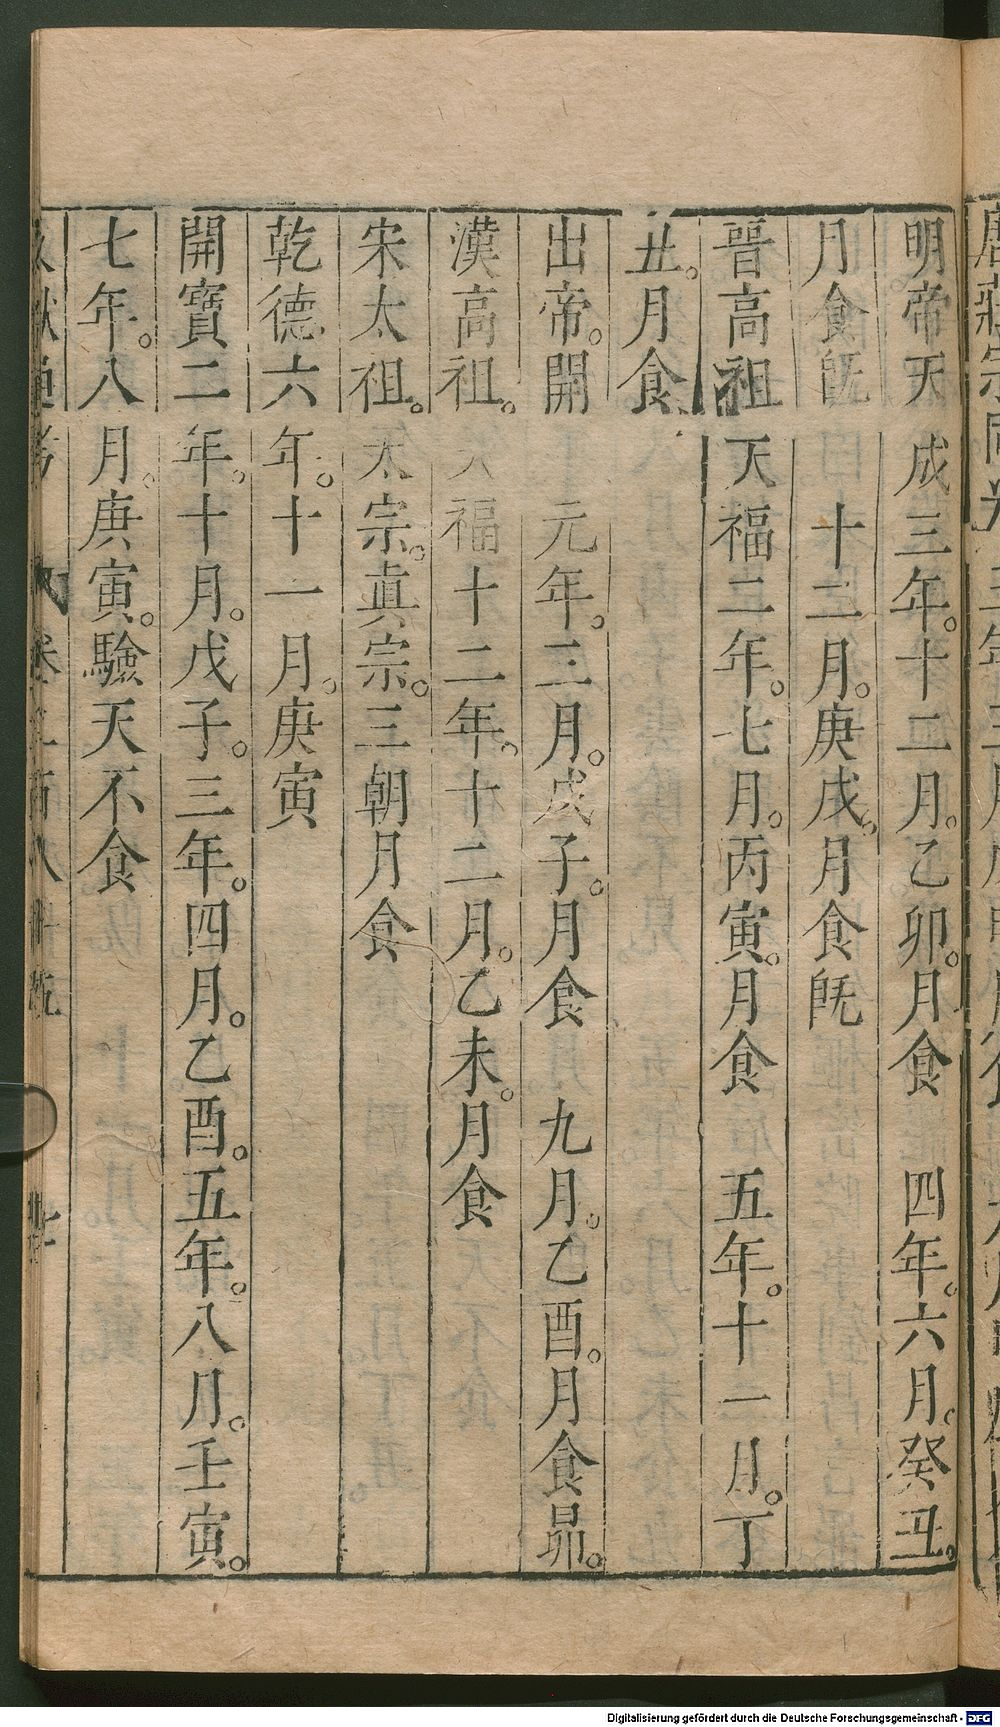 明帝天成三年。十二月。乙卯。月食　四年。六月。癸丑。
月食旣　十二月。庚戌。月食旣
晉高祖天福二年。七月。丙寅。月食　五年。十一月。丁
丑。月食
出帝。開　元年。三月。戊子。月食　九月。乙酉。月食昴。
漢高祖。天福十二年。十二月。乙未。月食
宋太祖。太宗。真宗。三朝月食
乾德六年。十一月。庚寅
開寶二年。十月。戊子。三年。四月。乙酉。五年。八月。壬寅。
七年。八月。庚寅。驗天不食
Digitalisierung gefördert durch die Deutsche Forschungsgemeinschaft - DFG